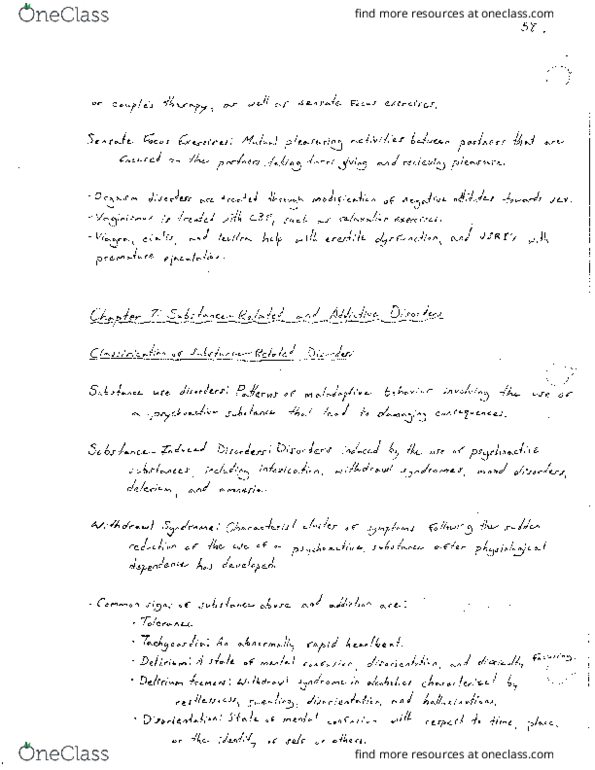 OneClass
find more resources at oneclass.com
58.
or couple's therapy, as well as sensate focus exercises.
Sensate Focus Exercises: Mutual pleasuring activities between partners that are
focused on the partners taking turns giving and recieving pleasure.
- Orgasm disorders are treated through modification of negative attitudes towards sex.
- Vaginismus is treated with CBT, such as relaxation exercises.
- Viagra, cialis, and levitra help with erectile dysfunction, and SSRI's with
premature ejaculation.
Chapter 7: Substance-Related and Addictive Disorders
Classification of Substance-Related Disorders
Substance use disorders: Patterns of maladaptive behavior involving the use of
a psychoactive substance that lead to damaging consequences.
Substance-Induced Disorders: Disorders induced by the use of psychoactive
substances, including intoxication, withdrawl syndromes, mood disorders,
delerium, and amnesia.
Withdrawl Syndrome: Characterist cluster of symptoms following the sudden
reduction of the use of a psychoactive substance after physiological
dependence has developed.
- Common signs of substance abuse and addiction are:
• Tolerance
• Tachycardia: An abnormally rapid heartbeat.
• Delirium: A state of mental confusion, disorientation, and difficulty focusing.
• Delirium tremens: Withdrawl syndrome in alcoholics characterized by
restlessness, sweating, disorientation, and hallucinations.
• Disorientation: State of mental confusion with respect to time, place,
or the identity of self or others.
OneClass
find more resources at oneclass.com